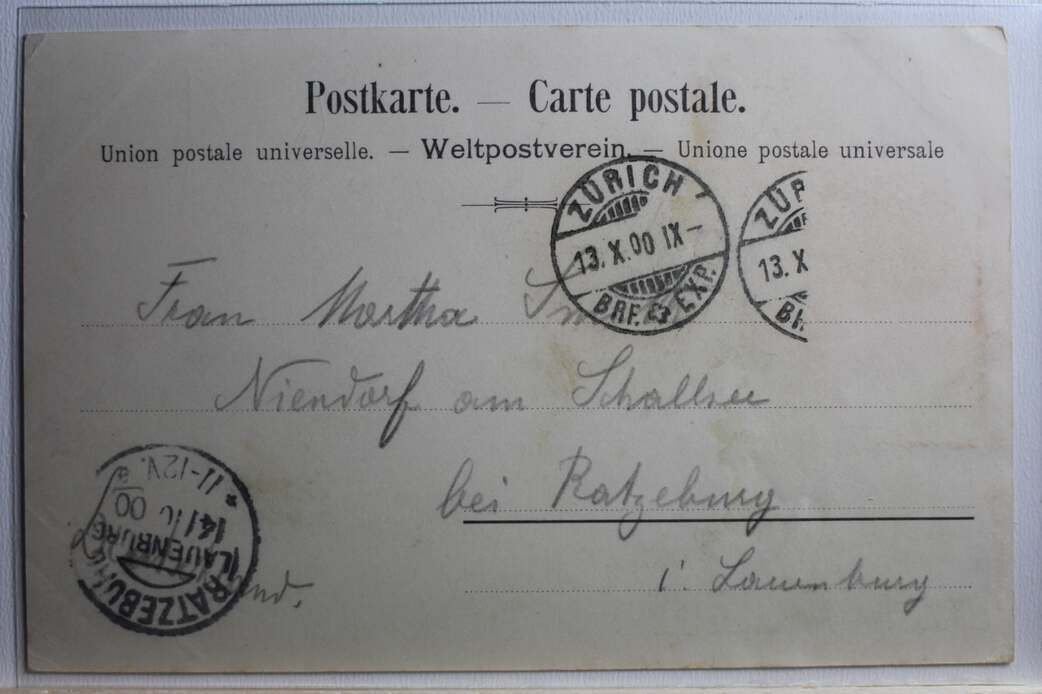 Postkarte. — Carte postale.
Union postale universelle. — Weltpostverein. — Unione postale universale
ZÜRICH
13. X. 00 IX–
BRF. EXP.
ZÜR
13. X
BR
Frau Martha
Niendorf am Schallsee
bei Ratzeburg
i. Lauenburg
RATZEBURG
(LAUENBURG
14/10 00
* 11-12V.